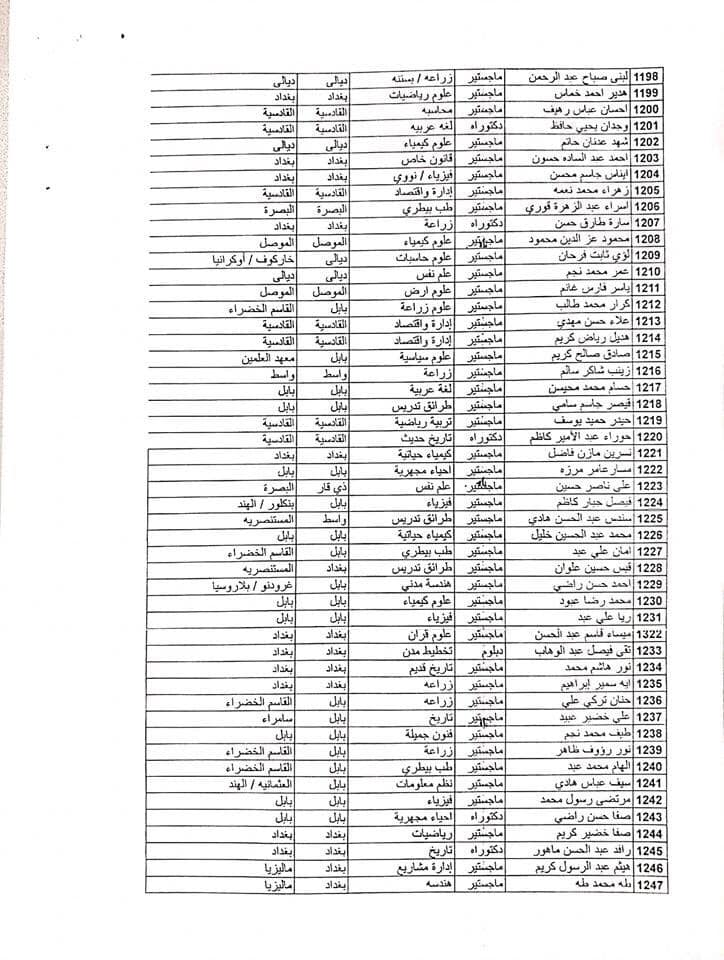 1198 لبنى صباح عبد الرحمن ماجستير زراعه / بستنه ديالى ديالى
1199 هدير احمد خماس ماجستير علوم رياضيات بغداد بغداد
1200 احسان عباس رهيف ماجستير محاسبه القادسية القادسية
1201 وجدان يحيى حافظ دكتوراه لغه عربيه القادسية القادسية
1202 شهد عدنان حاتم ماجستير علوم كيمياء ديالى ديالى
1203 احمد عبد الساده حسون ماجستير قانون خاص بغداد بغداد
1204 ايناس جاسم محسن ماجستير فيزياء / نووي بغداد بغداد
1205 زهراء محمد نعمه ماجستير إدارة واقتصاد القادسية القادسية
1206 اسراء عبد الزهرة فوري ماجستير طب بيطري البصرة البصرة
1207 سارة طارق حسن دكتوراه زراعة بغداد بغداد
1208 محمود عز الدين محمود ماجستير علوم كيمياء الموصل الموصل
1209 لؤي ثابت فرحان ماجستير علوم حاسبات ديالى خاركوف / أوكرانيا
1210 عمر محمد نجم ماجستير علم نفس ديالى ديالى
1211 ياسر فارس غانم ماجستير علوم ارض الموصل الموصل
1212 كرار محمد طالب ماجستير علوم زراعة بابل القاسم الخضراء
1213 علاء حسن مهدي ماجستير إدارة واقتصاد القادسية القادسية
1214 هديل رياض كريم ماجستير إدارة واقتصاد القادسية القادسية
1215 صادق صالح كريم ماجستير علوم سياسية بابل معهد العلمين
1216 زينب شاكر سالم ماجستير زراعة واسط واسط
1217 حسام محمد محيسن ماجستير لغة عربية بابل بابل
1218 قيصر جاسم سامي ماجستير طرائق تدريس بابل بابل
1219 حيدر حميد يوسف ماجستير تربية رياضية القادسية القادسية
1220 حوراء عبد الأمير كاظم دكتوراه تاريخ حديث القادسية القادسية
1221 نسرين مازن فاضل ماجستير كيمياء حياتية بغداد بغداد
1222 مسار عامر مرزه ماجستير احياء مجهرية بابل بابل
1223 على ناصر حسين ماجستير علم نفس ذي قار البصرة
1224 فيصل جبار كاظم ماجستير فيزياء بابل بنكلور / الهند
1225 سندس عبد الحسن هادي ماجستير طرائق تدريس واسط المستنصريه
1226 محمد عبد الحسين خليل ماجستير كيمياء حياتية بابل بابل
1227 امان علي عبد ماجستير طب بيطري بابل القاسم الخضراء
1228 قيس حسين علوان ماجستير طرائق تدريس بغداد المستنصريه
1229 احمد حسن راضي ماجستير هندسة مدني بابل غرودنو / بلاروسيا
1230 محمد رضا عبود ماجستير علوم كيمياء بابل بابل
1231 ربا علي عبد ماجستير فيزياء بابل بابل
1322 ميساء قاسم عبد الحسن ماجستير علوم قران بغداد بغداد
1233 تقى فيصل عبد الوهاب دبلوم تخطيط مدن بغداد بغداد
1234 نور هاشم محمد ماجستير تاريخ قديم بغداد بغداد
1235 ايه سمير إبراهيم ماجستير زراعه بغداد بغداد
1236 حنان تركي علي ماجستير زراعه بابل القاسم الخضراء
1237 علي خضير عبيد ماجستير تاريخ بابل سامراء
1238 طيف محمد نجم ماجستير فنون جميلة بابل بابل
1239 نور رؤوف ظاهر ماجستير زراعة بابل القاسم الخضراء
1240 الهام محمد عبد ماجستير طب بيطري بابل القاسم الخضراء
1241 سيف عباس هادي ماجستير نظم معلومات بابل العثمانيه / الهند
1242 مرتضى رسول محمد ماجستير فيزياء بابل بابل
1243 صفا حسن راضي دكتوراه احياء مجهرية بابل بابل
1244 صفا خضير كريم ماجستير رياضيات بغداد بغداد
1245 رافد عبد الحسن ماهور دكتوراه تاريخ بغداد بغداد
1246 هيثم عبد الرسول كريم ماجستير إدارة مشاريع بغداد ماليزيا
1247 طه محمد طه ماجستير هندسه بغداد ماليزيا